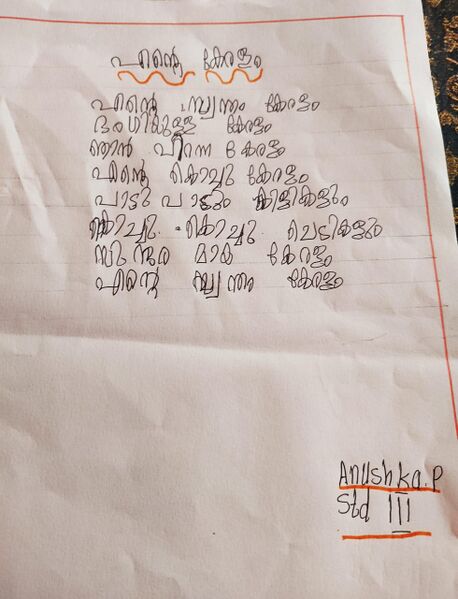 എന്റെ കേരളം
എന്റെ സ്വന്തം കേരളം
ഭംഗിയുള്ള കേരളം
ഞാൻ പിറന്ന കേരളം
എന്റെ കൊച്ചു കേരളം
പാട്ടു പാടും കിളികളും
കൊച്ചു കൊച്ചു ചെടികളും
സുന്ദര മാം കേരളം
എന്റെ സ്വന്തം കേരളം
Anushka.P
Std III